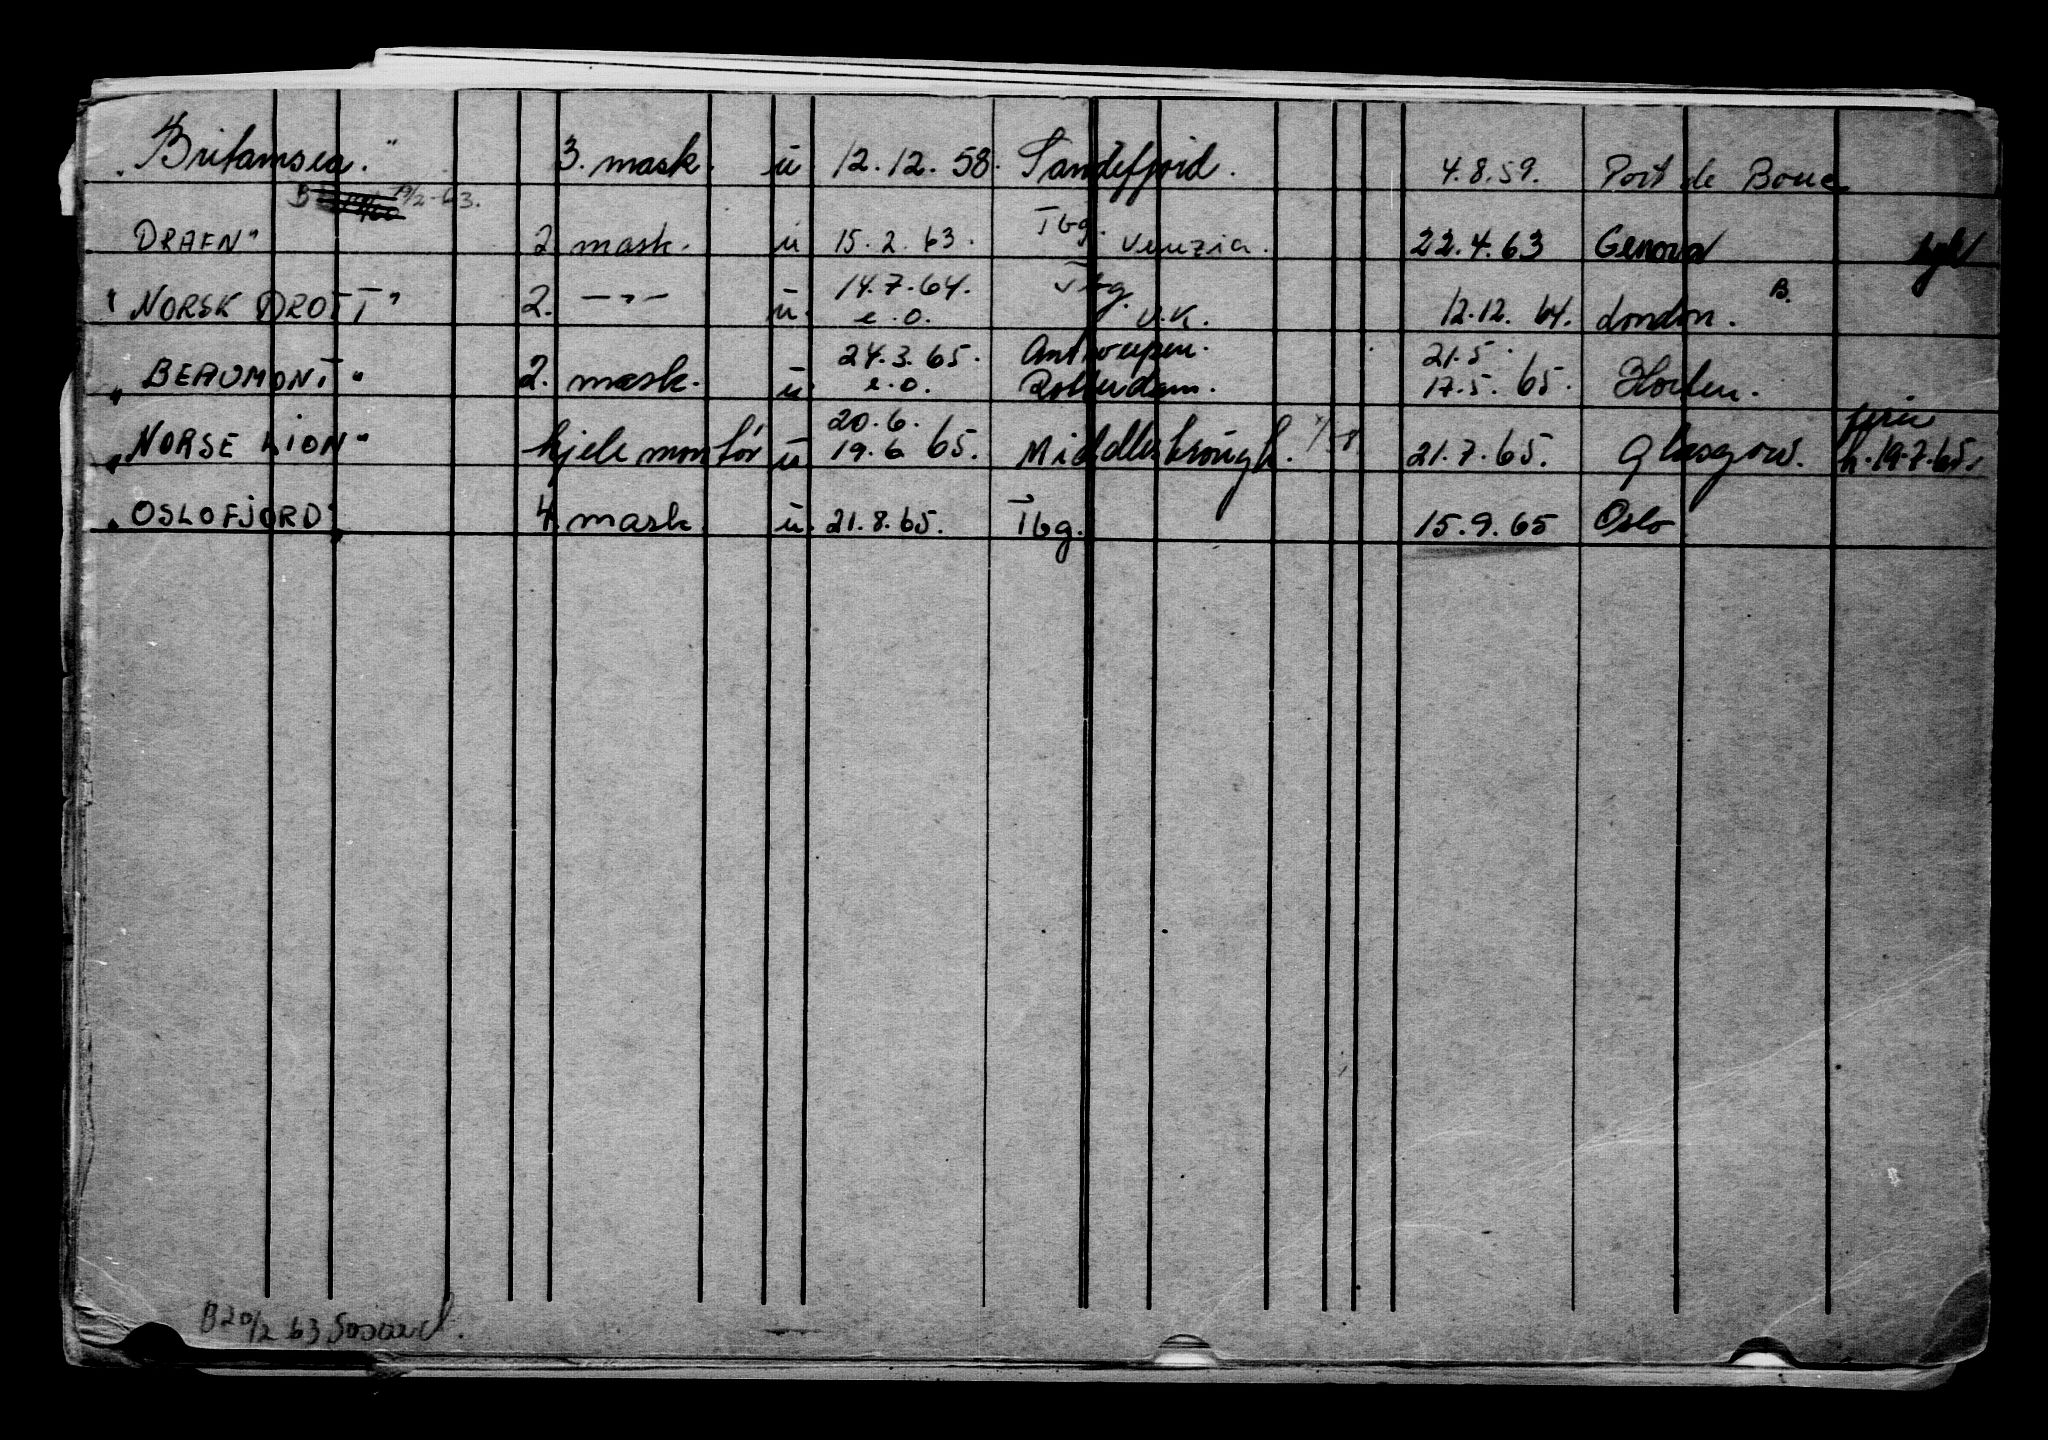 "Britamsea." 3. mask. u. 12.12.58. Sandefjord. 4.8.59. Port de Bouc
B 19/2-63.
DRAFN" 2 mask. u 15.2.63. Tbg. Venezia. 22.4.63 Genova
"NORSK DROTT" 2. —"— u. 14.7.64. e.o. Tbg. U.K. 12.12.64. London. B.
"BEAUMONT" 2. mask. u 24.3.65. e.o. Antwerpen. Rotterdam. 21.5. 17.5.65. Horten.
"NORSE LION" kjelemontør u 20.6. 19.6 65. Middlesbrough. 21.7.65. Glasgow. ferie h.19.7.65.
"OSLOFJORD" 4. mask. u. 21.8.65. Tbg. 15.9.65 Oslo
B20/2 63